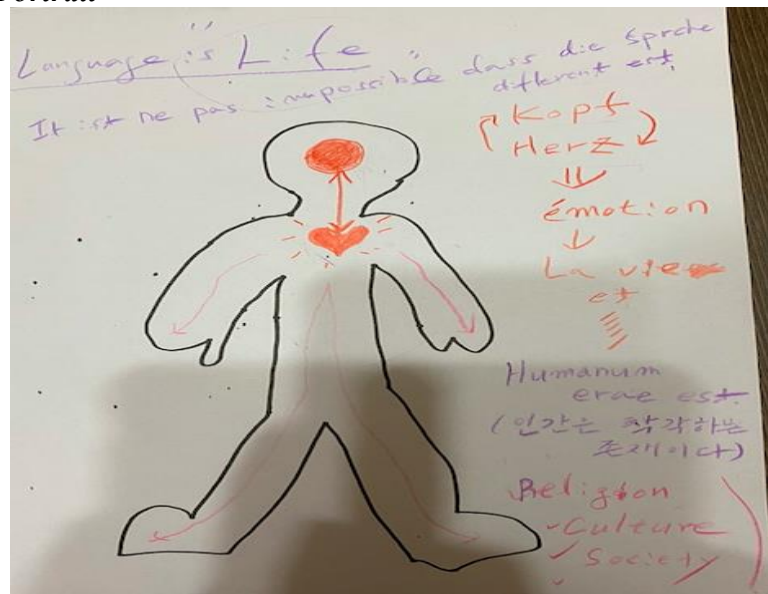 "Language is Life"
It ist ne pas impossible dass die Sprche
different est.
Kopf
Herz
émotion
La vie
est
Humanum
erae est.
(인간은 착각하는
존재이다)
Religion
Culture
Society